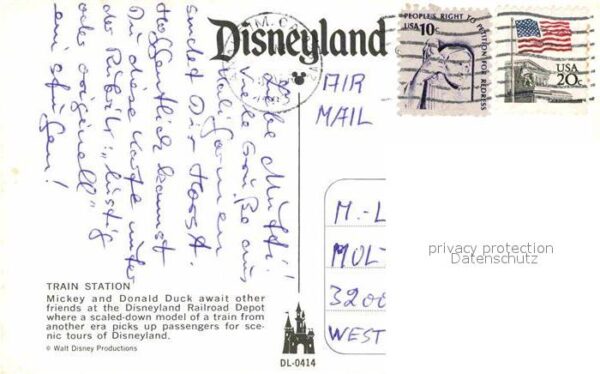 Disneyland
PEOPLE'S RIGHT TO PETITION FOR REDRESS
USA 10c
USA
20c
AIR
MAIL
Liebe Mutti!
Viele Grüße aus
Kalifornien
sendet Dir Horst.
Hoffentlich kannst
Du diese Karte unter
der Rubrik: "lustig
oder originell"
einfügen!
M.-L
MUL
3200
WEST
privacy protection
Datenschutz
TRAIN STATION
Mickey and Donald Duck await other
friends at the Disneyland Railroad Depot
where a scaled-down model of a train from
another era picks up passengers for sce-
nic tours of Disneyland.
© Walt Disney Productions
DL-0414